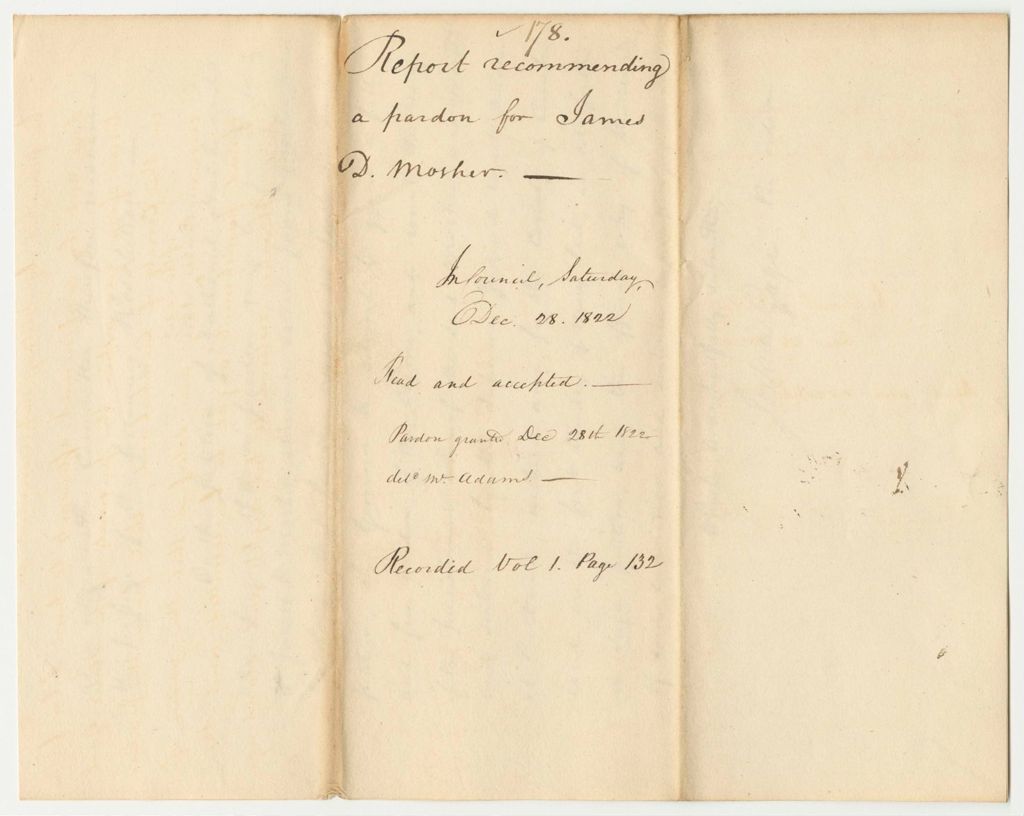 178.
Report recommending
a pardon for James
D. Mosher. —
In Council, Saturday,
Dec. 28. 1822
Read and accepted. —
Pardon granted Dec 28th 1822
deld Mr Adams. —
Recorded Vol 1. Page 132